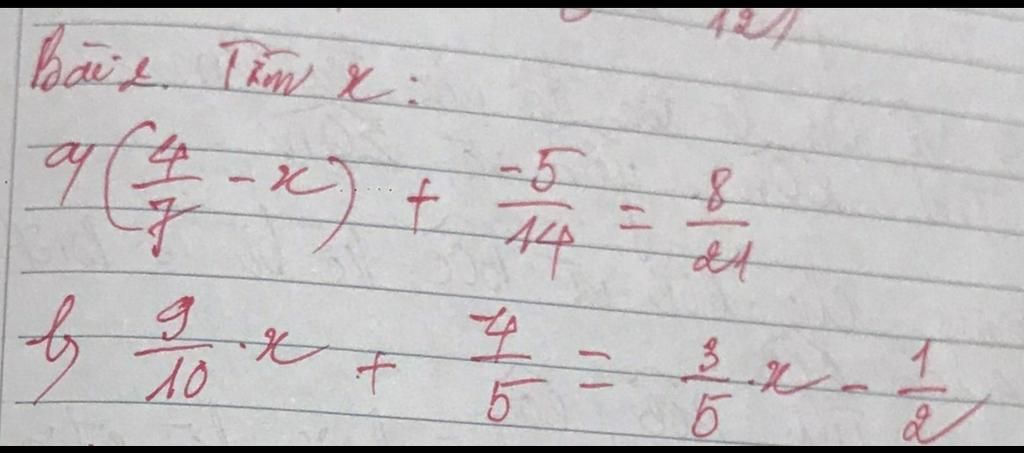 121
Bài 2. Tìm x:
a) (4/7 - x) + -5/14 = 8/21
b) 9/10 . x + -4/5 = 3/5 . x - 1/2